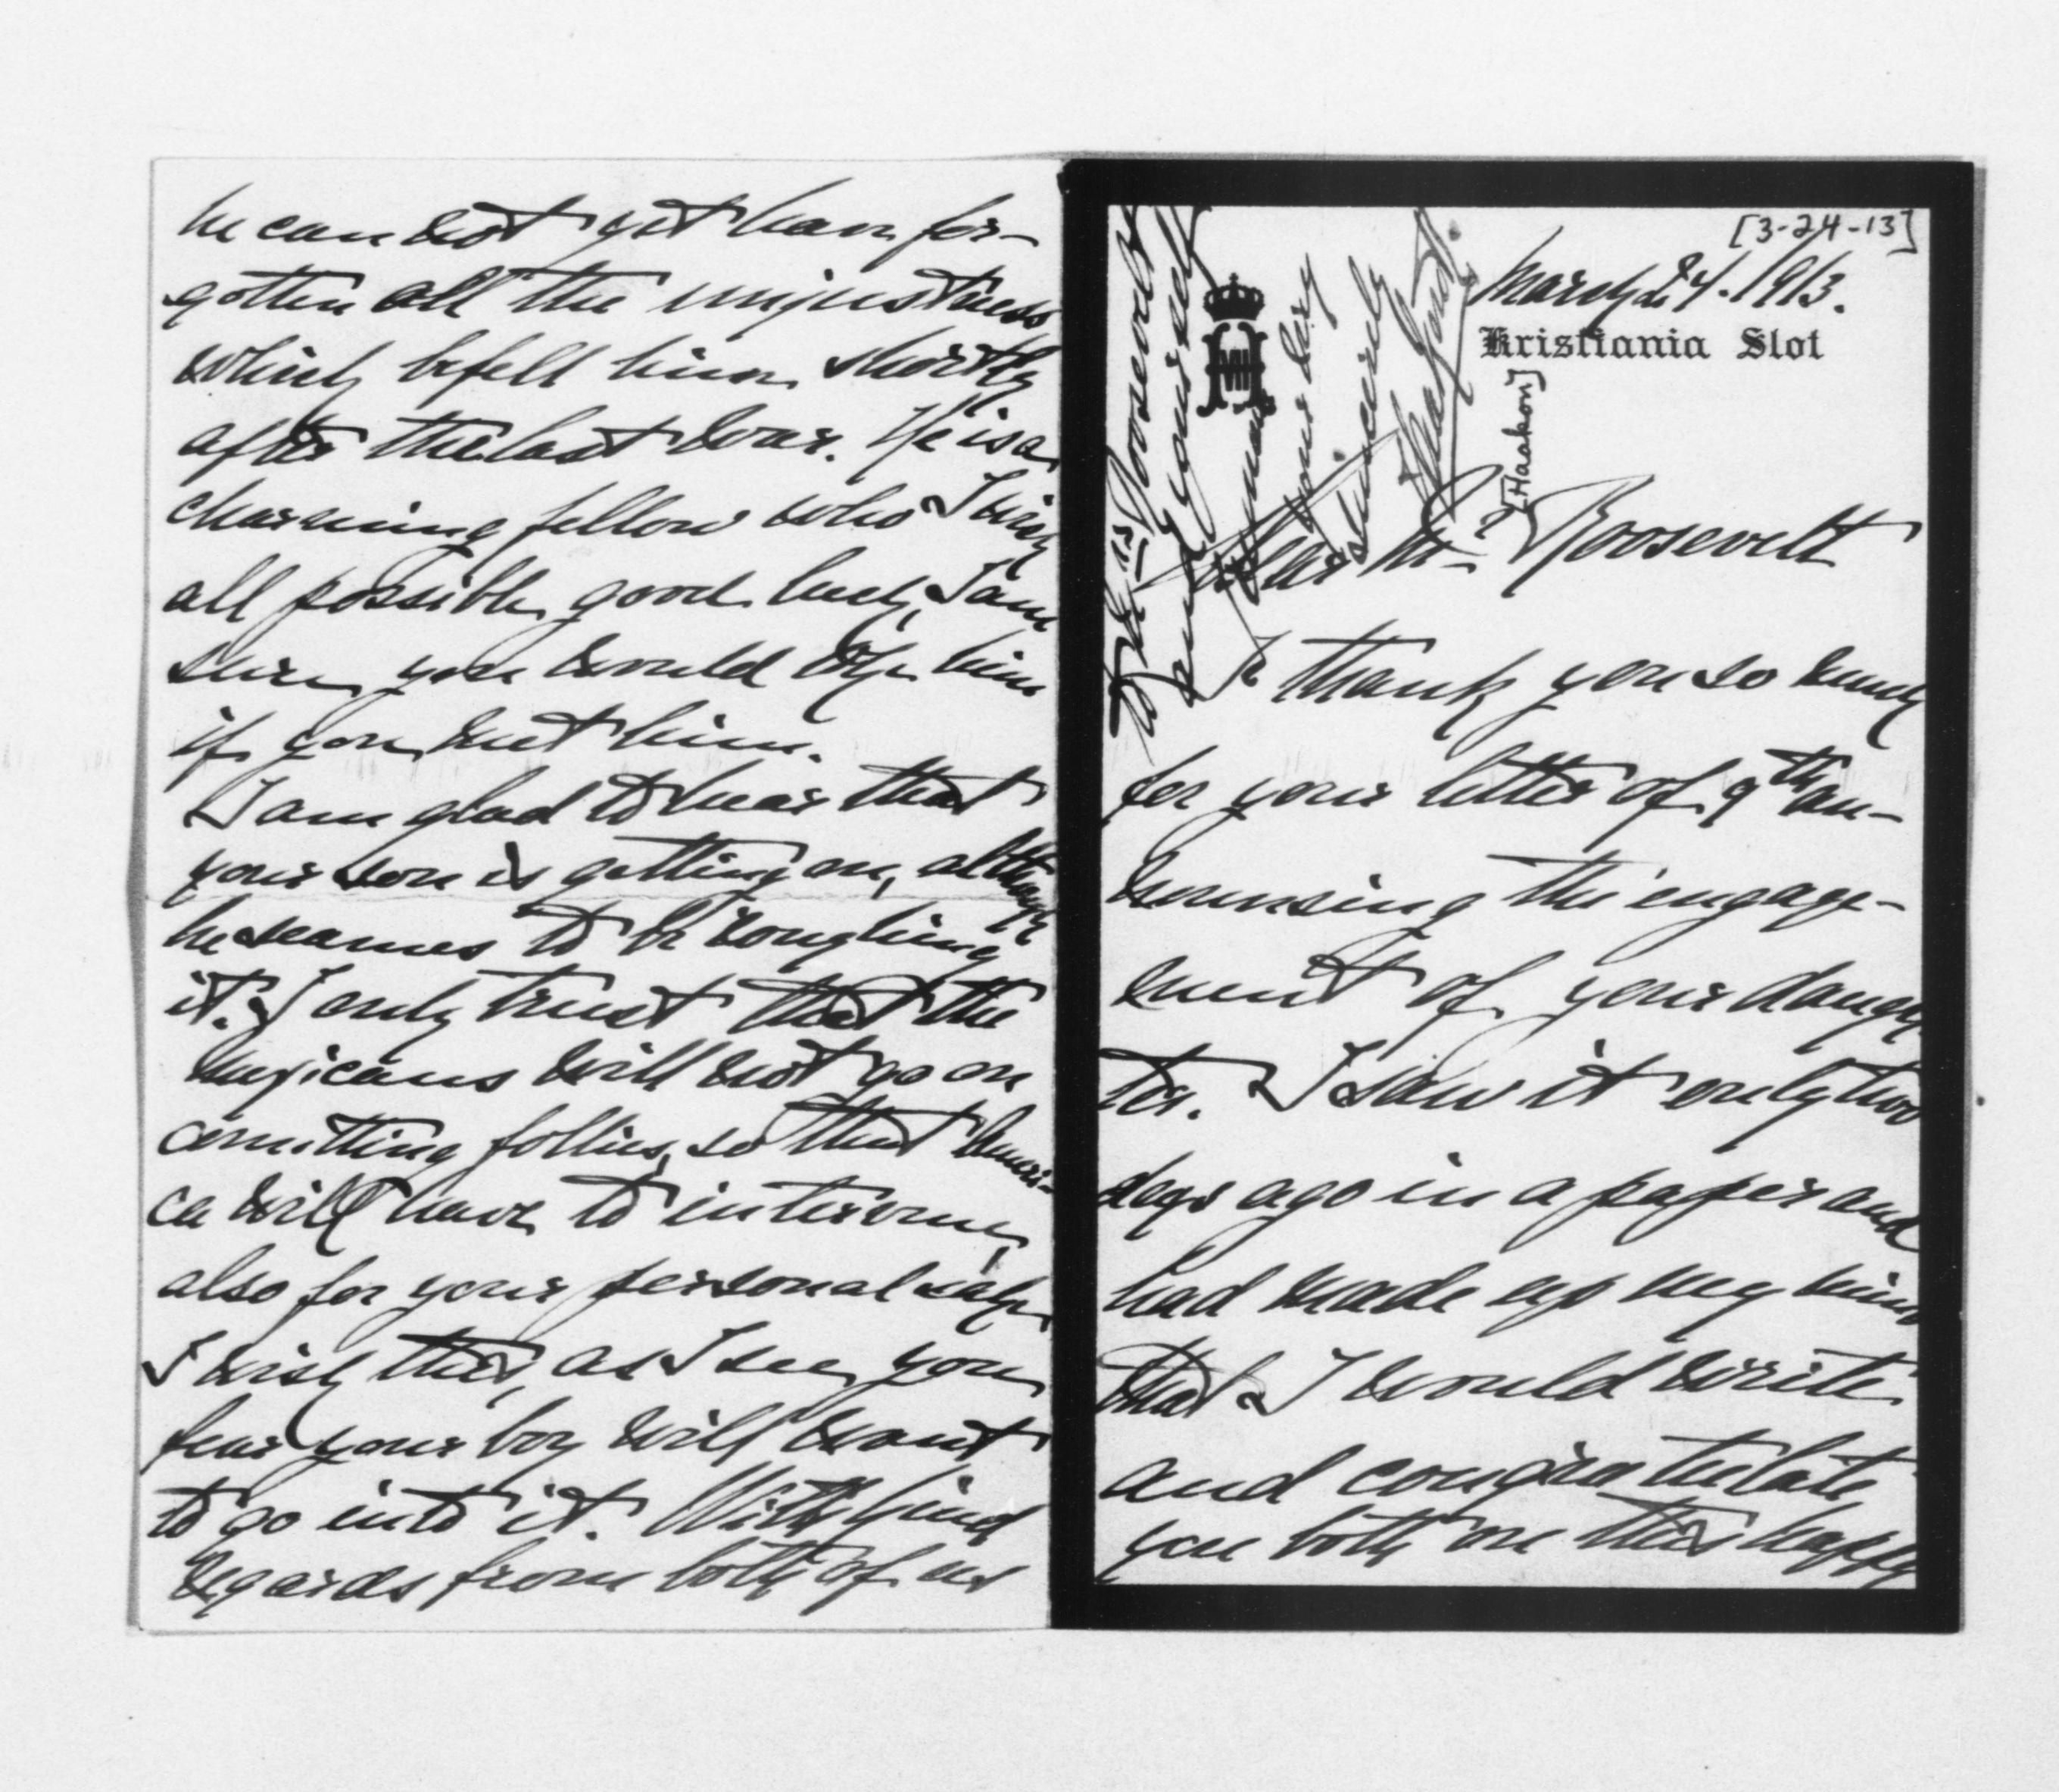 [3-24-13]
March 24. 1913.
Kristiania Slot
Dear Mr Roosevelt
I thank you so much
for your letter of 9th an-
nounsing the engage-
ment of your daugh
ter. I saw it only two
days ago in a paper and
had made up my mind
that I would write
and congratulate
you both on this happy
he can not yet have for-
gotten all the unjustness
which befell him shortly
after the last war. He is a
charming fellow who I wish
all possible good luck, I am
sure you would like him
if you met him.
I am glad to hear that
your son is getting on, although
he seames to be roughing
it. I only trust that the
mexicans will not go on
comitting follies, so that Ameri-
ca will have to intervene,
also for your personal sake
I wish this, as I see you
fear your boy will want
to go into it. With kind
regards from both of us
to Mrs Roosevelt
and yourself
I remain
yours very
sincerely
Haakon R.
[Haakon]